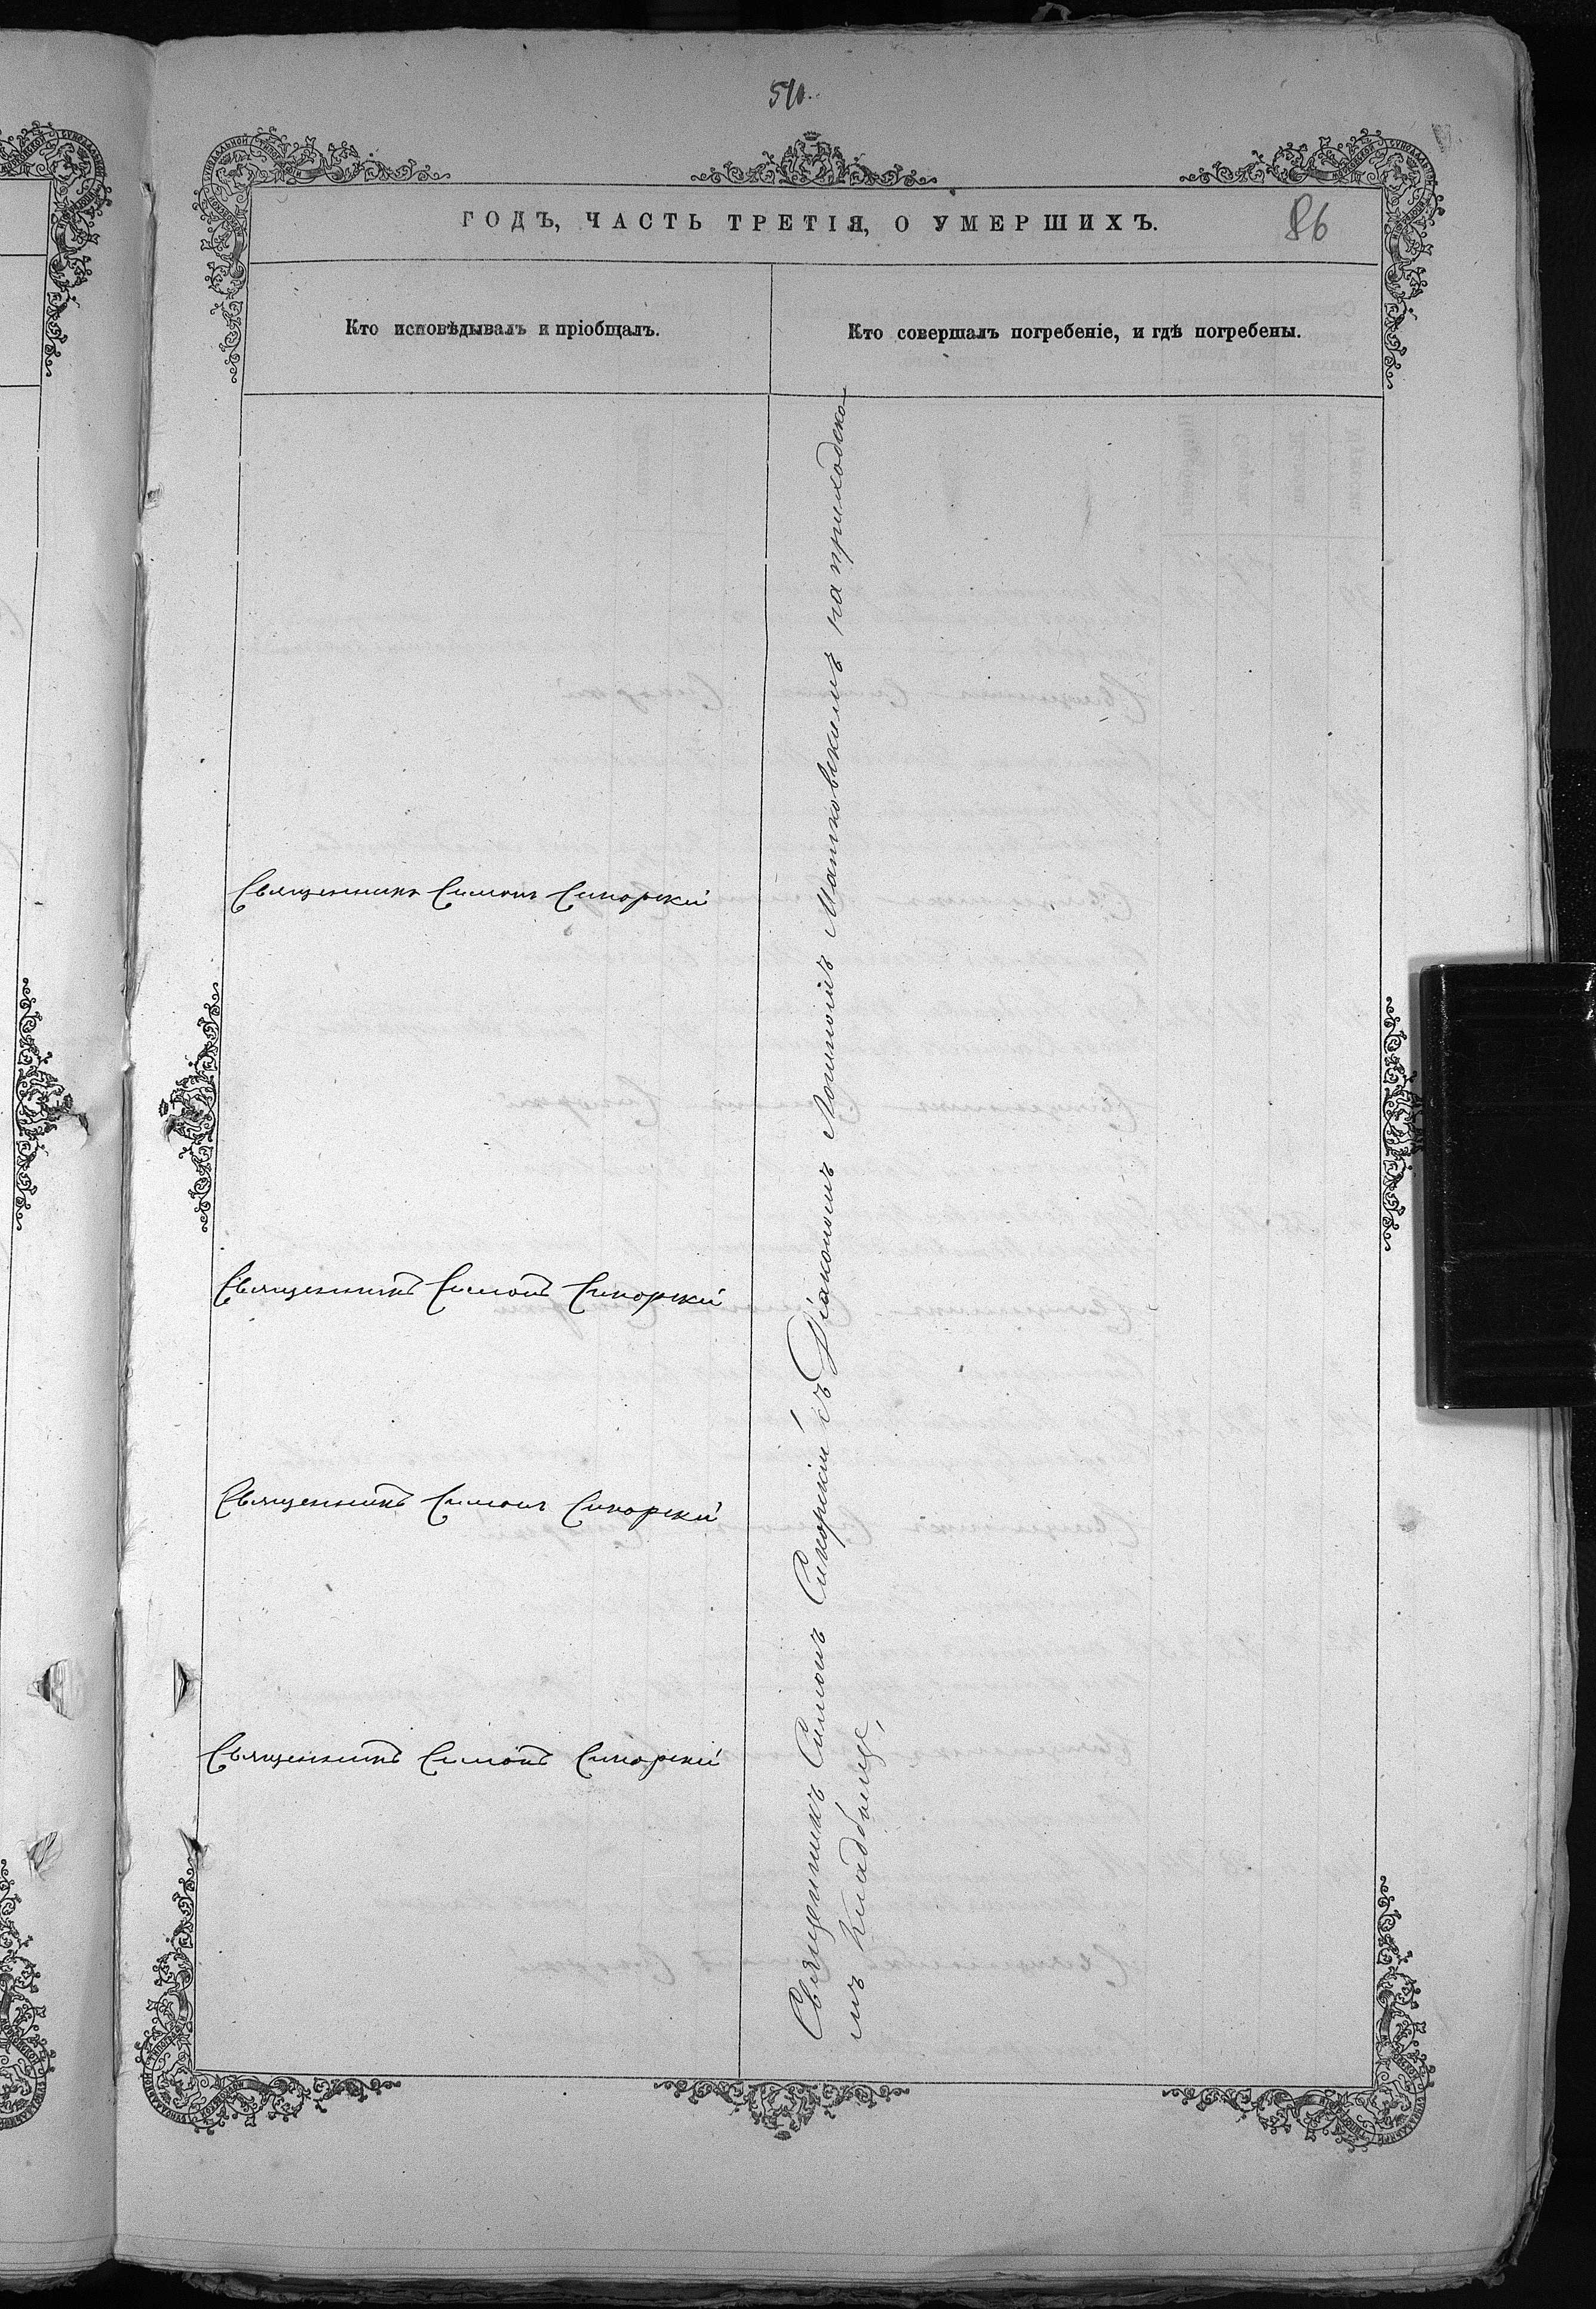 510.
ГОДЪ, ЧАСТЬ ТРЕТІЯ, О УМЕРШИХЪ.
86
Кто исповѣдывалъ и пріобщалъ.
Кто совершалъ погребеніе, и гдѣ погребены.
Священникъ Симонъ Сикорскій
Священникъ Симонъ Сикорскій
Священникъ Симонъ Сикорскій
Священникъ Симонъ Сикорскій
Священникъ Симонъ Сикорскій съ Діакономъ Маньковскимъ на приходско-
мъ кладбищѣ,